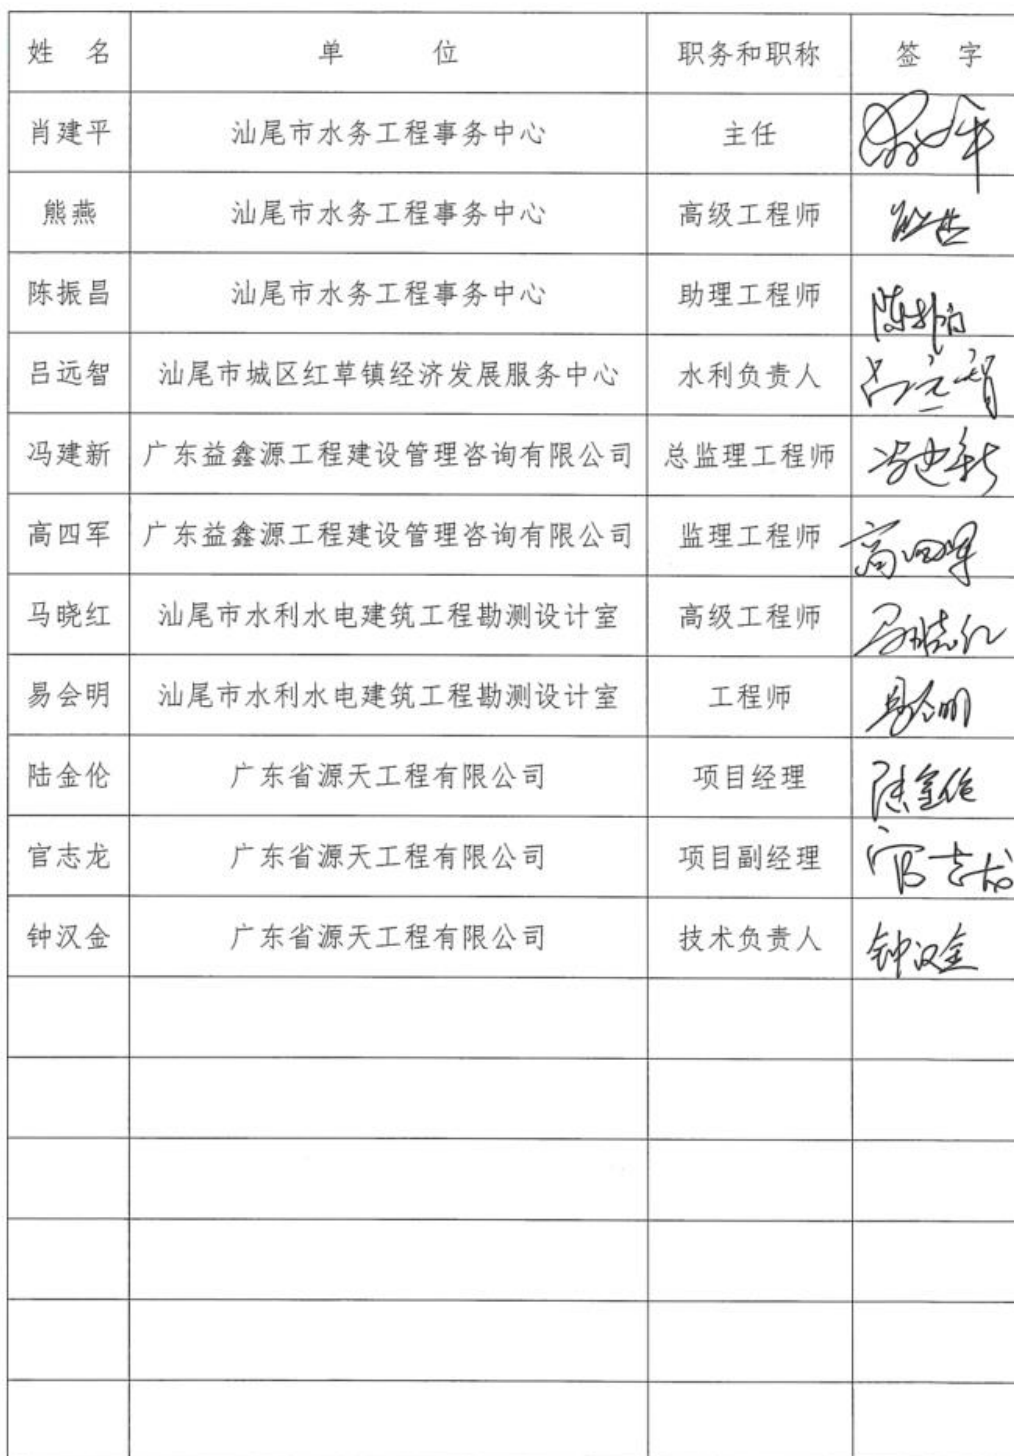 姓 名 单 位 职务和职称 签 字
肖建平 汕尾市水务工程事务中心 主任
熊燕 汕尾市水务工程事务中心 高级工程师
陈振昌 汕尾市水务工程事务中心 助理工程师 陈振昌
吕远智 汕尾市城区红草镇经济发展服务中心 水利负责人 吕远智
冯建新 广东益鑫源工程建设管理咨询有限公司 总监理工程师 冯建新
高四军 广东益鑫源工程建设管理咨询有限公司 监理工程师 高四军
马晓红 汕尾市水利水电建筑工程勘测设计室 高级工程师 马晓红
易会明 汕尾市水利水电建筑工程勘测设计室 工程师 易会明
陆金伦 广东省源天工程有限公司 项目经理 陆金伦
官志龙 广东省源天工程有限公司 项目副经理 官志龙
钟汉金 广东省源天工程有限公司 技术负责人 钟汉金